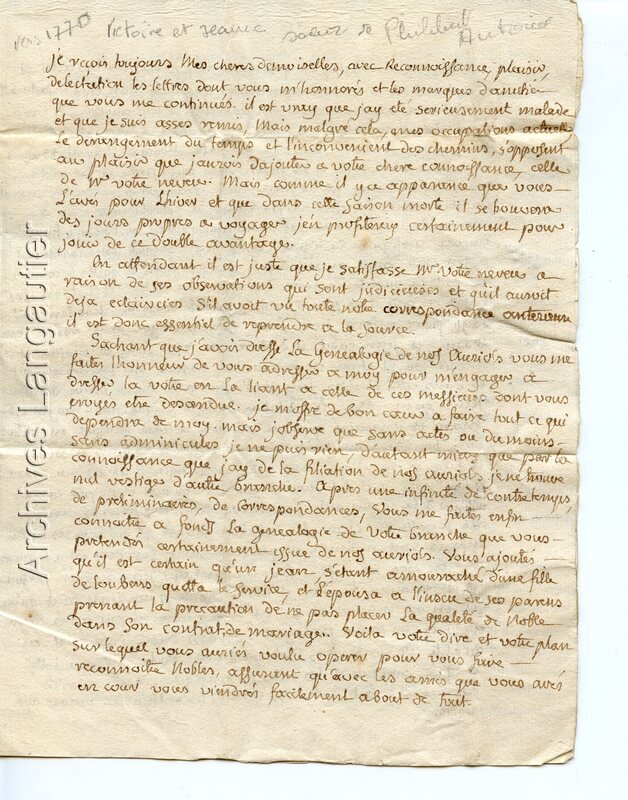 vers 1770 Victoire et Jeanne soeurs de Philibert
Antoine
je recois toujours Mes cheres demoiselles, avec Reconnoissance, plaisir,
delectation les lettres dont vous m'honnorés et les marques d'amitié
que vous me continués. il est vray que jay eté serieusement malade
et que je suis asses remis, Mais malgré cela, mes occupations actuelles
Le derangement du temps et l'inconvenient des chemins, s'opposent
au plaisir que j'aurois d'ajouter a votre chere connoissance, celle
de Mr votre neveu. Mais comme il y a apparance que vous
L'avés pour Lhiver et que dans cette saison morte il se trouvera
des jours propres a voyager j'en profiterai certainement pour
jouir de ce double avantage.
En attendant il est juste que je satisfasse Mr Votre neveu a
raison de ses observations qui sont judicieuses et qu'il auroit
deja eclaircies s'il avoit vu toute notre correspondance anterieure
il est donc essentiel de reprendre a la source.
Sachant que j'avois dressé La Genealogie de nos Auriols vous me
faites l'honneur de vous adresser a moy pour m'engager a
dresser la votre en La liant a celle de ces messieurs dont vous
croyes etre descendue. je m'offre de bon cœur a faire tout ce qui
dependra de moy. mais j'observe que sans actes ou du moins
sans adminicules je ne puis rien, d'autant mieux que par la
connoissance que jay de la filiation de nos auriols je ne trouve
nul vestiges d'autre branche. Apres une infinité de contretemps,
de preliminaires, de correspondances, Vous me faites enfin
connoitre a fonds La genealogie de Votre branche que vous
pretendés certainement issue de nos auriols. Vous ajoutés
qu'il est certain qu'un jean s'étant amouraché d'une fille
de loubens quitta le service, et L'epousa a l'insceu de ses parens
prenant la precaution de ne pas placer La qualeté de Noble
dans Son contrat de mariage. Voila votre dire et votre plan
sur lequel vous auriés voulu operer pour vous faire
reconnoitre Nobles, assurant qu'avec les amis que vous avés
en cour vous viendrés facilement a bout de tout.
Archives Langautier